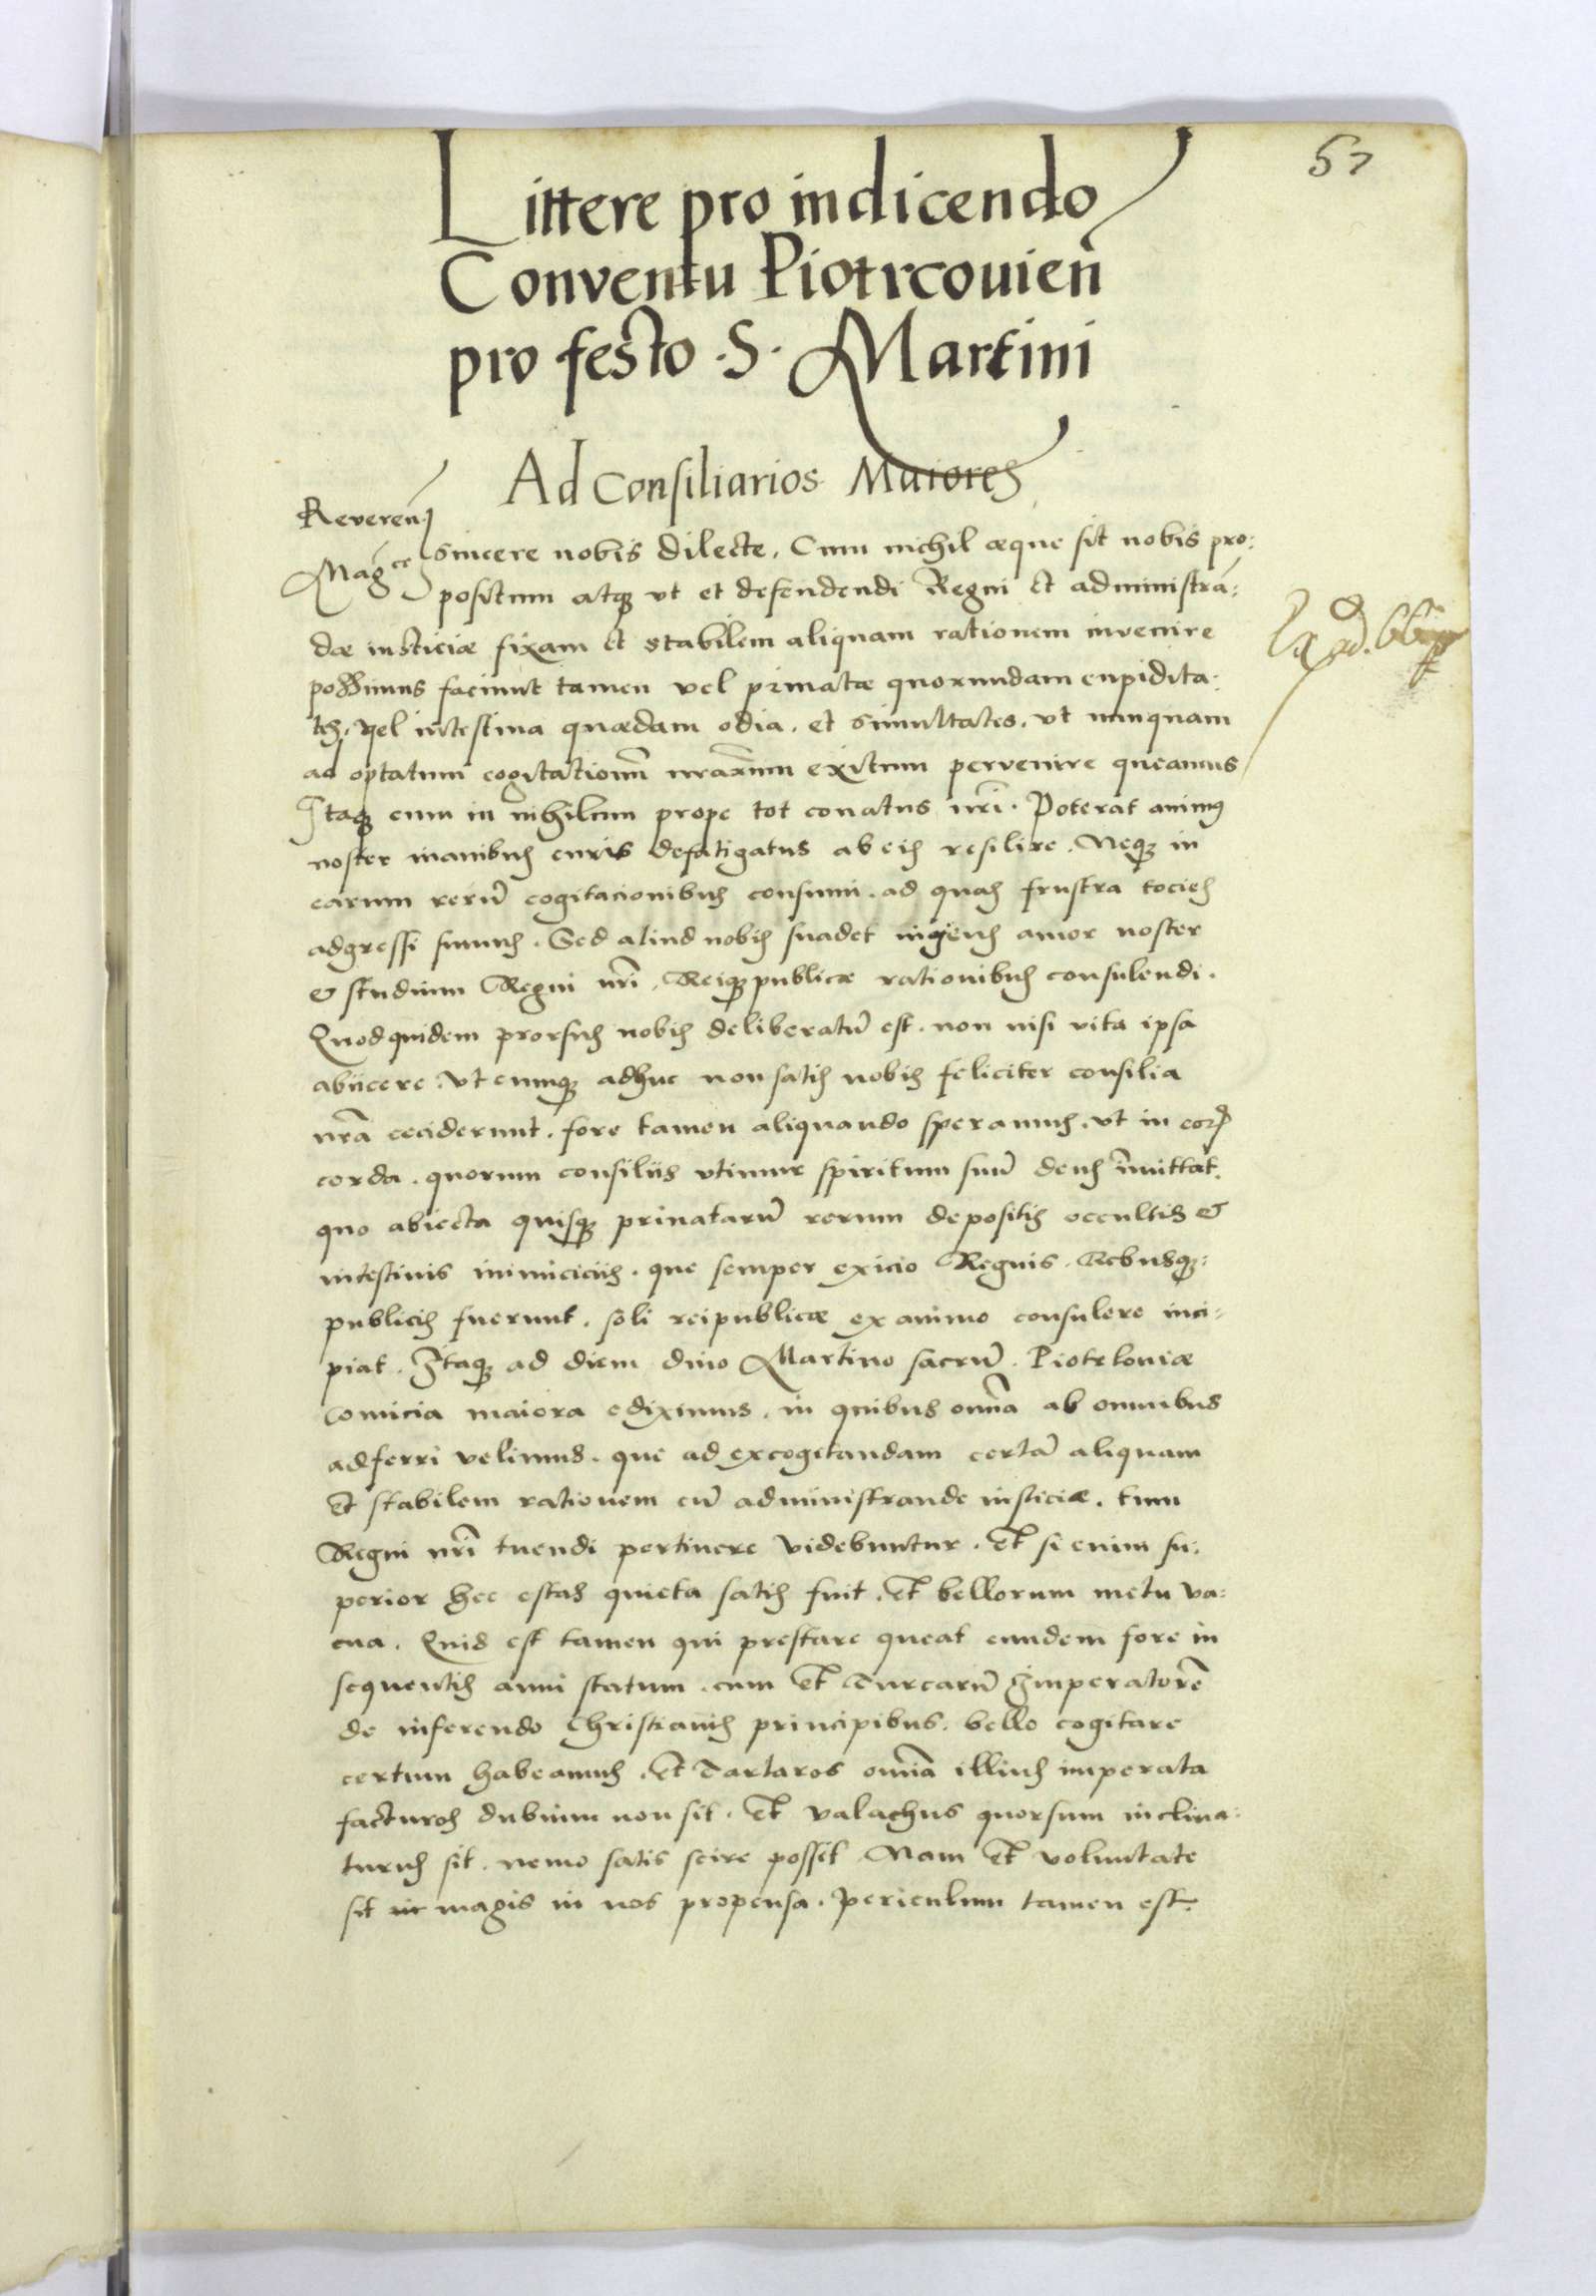 57
Littere pro indicendo
Conventu Piotrcouien̄
pro festo .S. Martini
Ad Consiliarios Maiores
Reveren̄
Mag̃ce sincere nobis dilecte. Cum nichil æque sit nobis pro:
positum atq̨ vt et defendendi Regni et administrā:
dæ iusticiæ fixam et stabilem aliquam rationem invenire
possimus faciunt tamen vel priuatæ quorundam cupidita:
tes. vel intestina quædam odia. et simultates. vt nunquam
ad optatum cogitationū nrārum exitum pervenire queamus
Itaq̨ cum in nihilum prope tot conatus nrī. Poterat animus
noster inanibus curis defatigatus ab eis resilire. Neq̨ in
earum rerū cogitacionibus consumi. ad quas frustra tocies
adgressi sumus. Sed aliud nobis suadet ingens amor noster
& studium Regni nrī. Reiq̨ publicæ rationibus consulendi.
Quod quidem prorsus nobis deliberatū est. non nisi vita ipsa
abiicere. Vt cunq̨ adhuc non satis nobis feliciter consilia
nrā ceciderunt. fore tamen aliquando speramus. vt in eorꝝ
corda. quorum consiliis vtimur spiritum suū deus īmittat.
quo abiecta quisq̨ priuatarū rerum depositis occultis &
intestinis inimiciciis. que semper exicio Regnis. Rebusq̨:
publicis fuerunt. soli reipublicæ ex animo consulere inci:
piat. Itaq̨ ad diem diuo Martino sacrū. Piotrkoviæ
comicia maiora ediximus. in quibus omīa ab omnibus
adferri velimus. que ad excogitandam certā aliquam
Et stabilem rationem cū administrande iusticiæ. tum
Regni nrī tuendi pertinere videbuntur. Et si enim su:
perior hec estas quieta satis fuit. Et bellorum metu va:
cua. Quis est tamen qui prestare queat eundem fore in
sequentis anni statum. cum Et Turcarū Imperatorē
de inferendo Christianis principibus. bello cogitare
certum habeamus. Et Tartaros omīa illius imperata
facturos dubium non sit. Et valachus quorsum inclina:
turus sit. nemo satis scire possit. Nam Et voluntate
sit magis in nos propensa. periculum tamen est.